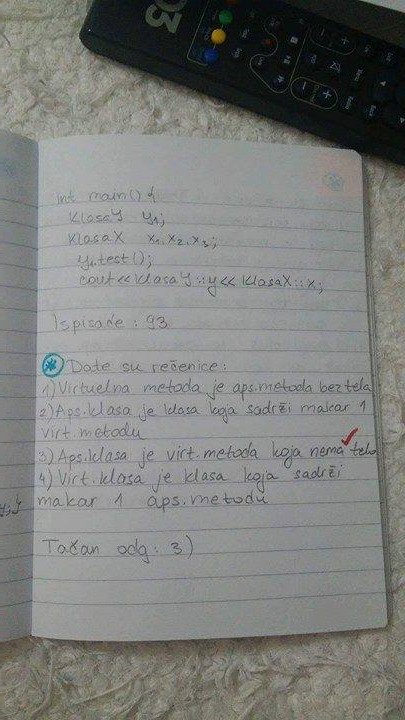 int main() {
KlasaY y1;
KlasaX x1, x2, x3;
y1.test();
cout<<KlasaY::y<< KlasaX::x;
Ispisaće : 93
* Date su rečenice:
1) Virtuelna metoda je aps.metoda bez tela
2) Aps.klasa je klasa koja sadrži makar 1
virt. metodu
3) Aps.klasa je virt.metoda koja nema telo
4) Virt. klasa je klasa koja sadrži
makar 1 aps. metodu
Tačan odg: 3)